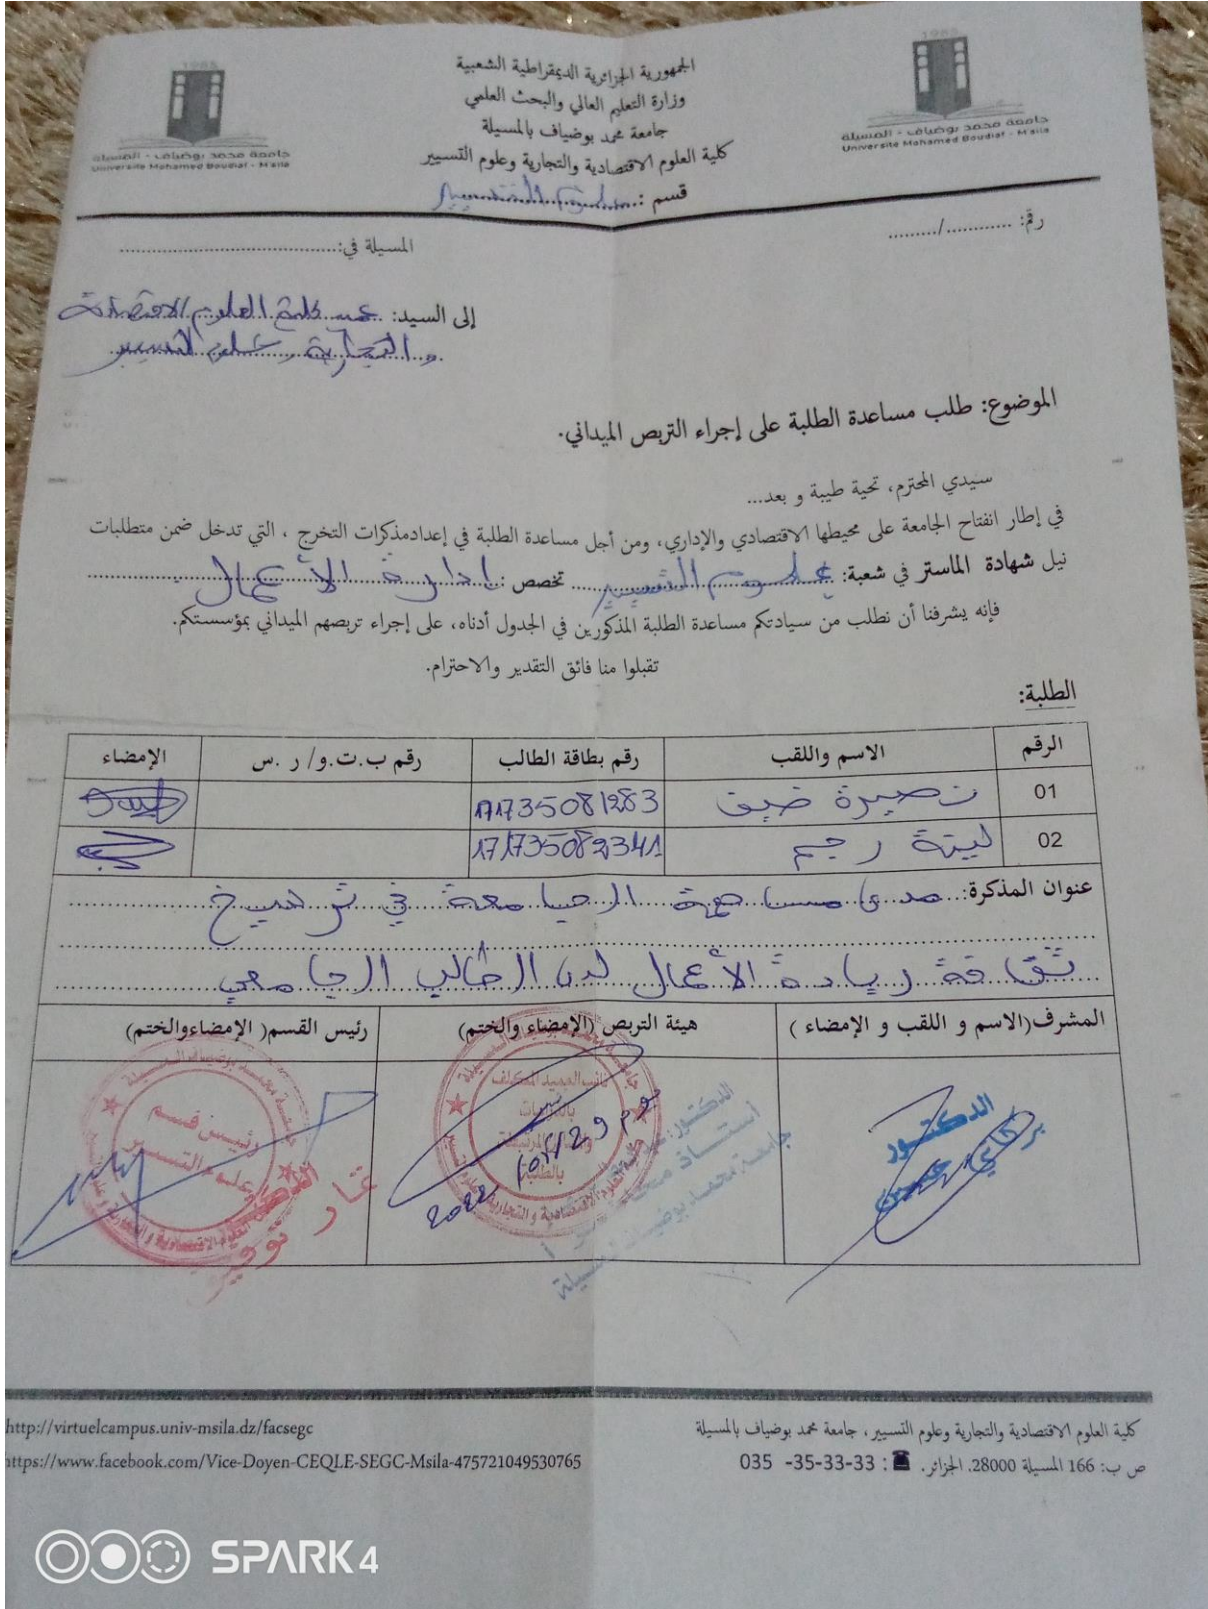 1985
جامعة محمد بوضياف - المسيلة
Université Mohamed Boudiaf - M'sila
الجمهورية الجزائرية الديمقراطية الشعبية
وزارة التعليم العالي والبحث العلمي
جامعة محمد بوضياف بالمسيلة
كلية العلوم الاقتصادية والتجارية وعلوم التسيير
قسم: علوم التسيير
1985
جامعة محمد بوضياف - المسيلة
Université Mohamed Boudiaf - M'sila
رقم: ............/.........
المسيلة في:
إلى السيد: عميد كلية العلوم الاقتصادية
و التجارية و علوم التسيير
الموضوع: طلب مساعدة الطلبة على إجراء التربص الميداني.
سيدي المحترم، تحية طيبة و بعد...
في إطار انفتاح الجامعة على محيطها الاقتصادي والإداري، ومن أجل مساعدة الطلبة في إعدادمذكرات التخرج ، التي تدخل ضمن متطلبات
نيل شهادة الماستر في شعبة: علوم التسيير تخصص : إدارة الأعمال
فإنه يشرفنا أن نطلب من سيادتكم مساعدة الطلبة المذكورين في الجدول أدناه، على إجراء تربصهم الميداني بمؤسستكم.
تقبلوا منا فائق التقدير والاحترام.
الطلبة:
الرقم الاسم واللقب رقم بطاقة الطالب رقم ب.ت.و/ ر .س الإمضاء
01 نصيرة ضيف 171735081283
02 لينة رحيم 171735082341
عنوان المذكرة: مدى مساهمة الجامعة في ترسيخ
ثقافة ريادة الأعمال لدى الطالب الجامعي
المشرف(الاسم و اللقب و الإمضاء ) هيئة التربص (الإمضاء والختم) رئيس القسم( الإمضاءوالختم)
الدكتور
نائب العميد المكلف
بالدراسات
والمسائل المرتبطة
بالطلبة
2022
رئيس قسم
علوم التسيير
كلية العلوم الاقتصادية والتجارية وعلوم التسيير، جامعة محمد بوضياف بالمسيلة
ص ب: 166 المسيلة 28000. الجزائر. ☎ : 035 -35-33-33
http://virtuelcampus.univ-msila.dz/facsegc
https://www.facebook.com/Vice-Doyen-CEQLE-SEGC-Msila-475721049530765
SPARK 4